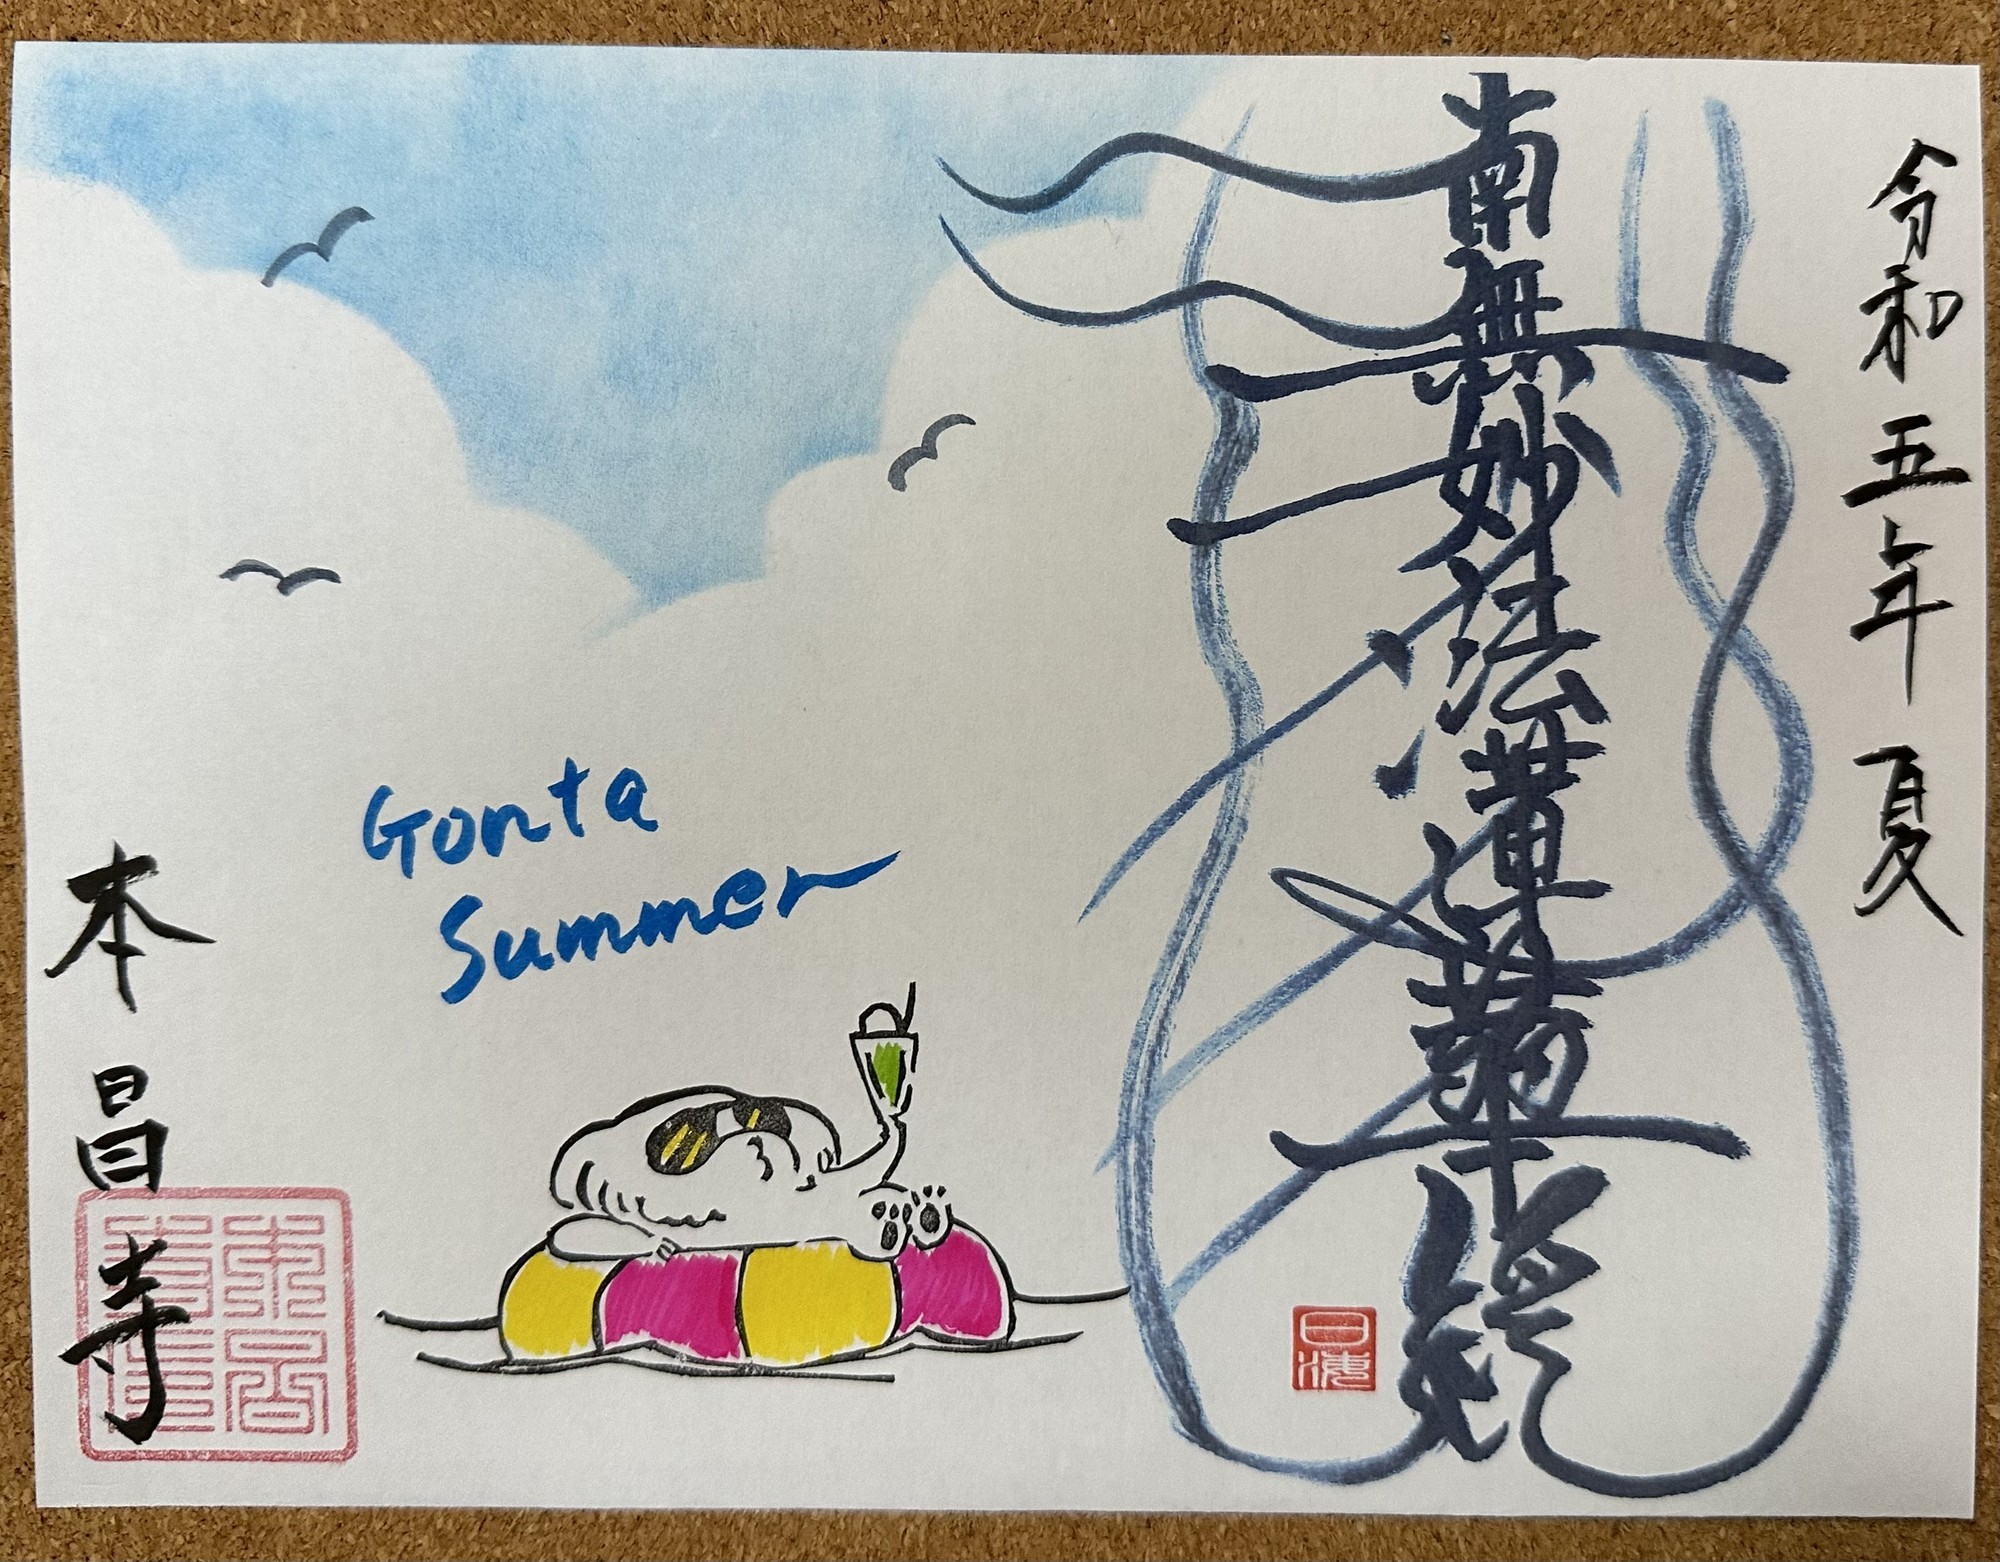 令和五年 夏
南無妙法蓮華経
Gonta
Summer
本昌寺